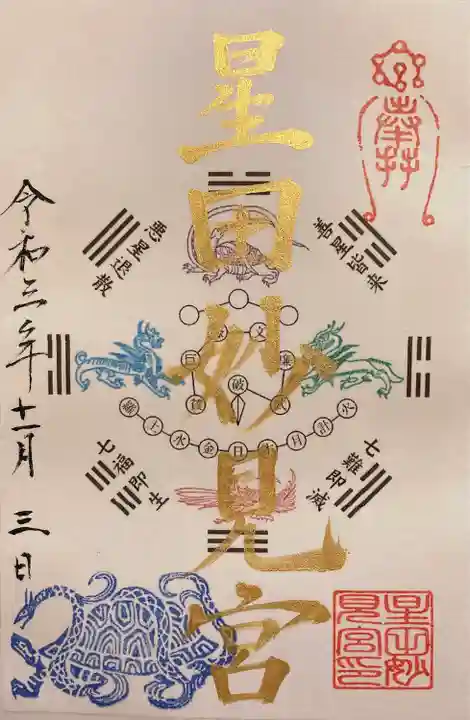 奉拝
星田妙見宮
善星皆来
悪星退散
巨
文
廉
武
破
土
水
金
日
月
計
火
七難即滅
七福即生
令和三年十一月三日
星田妙見宮印